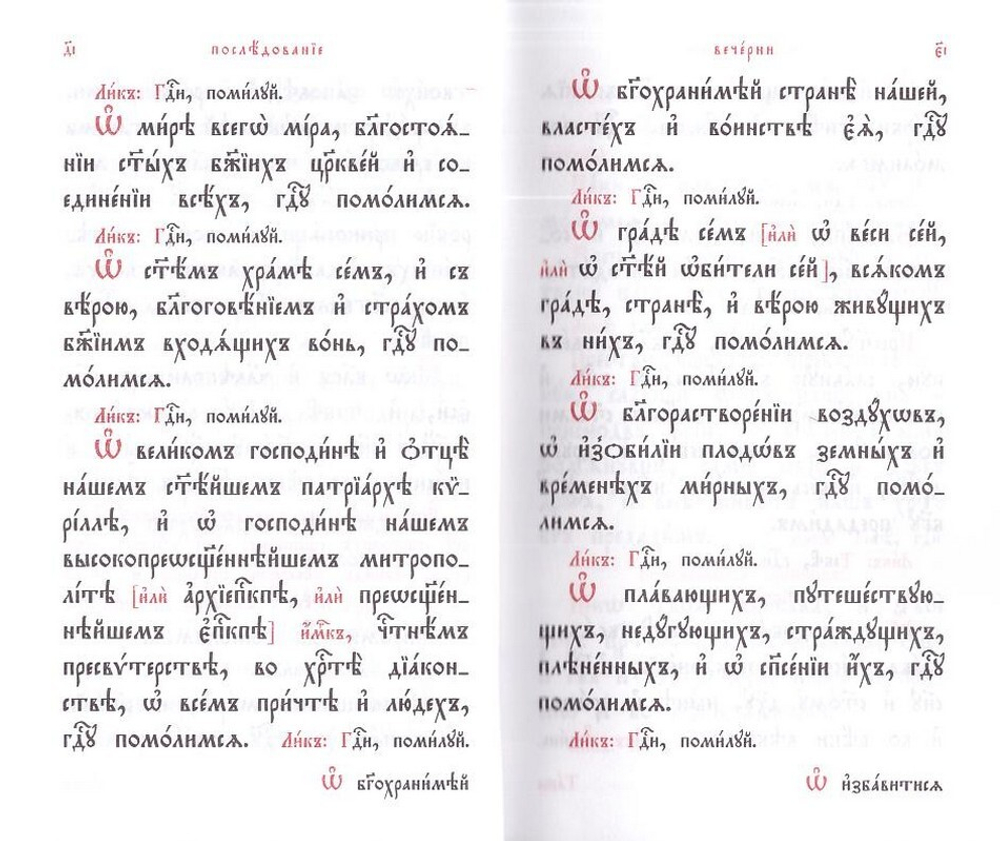 д҃і
послѣ́дованїе
Ли́къ: Гдⷭ҇и, поми́лꙋй.
Ѡ҆ ми́рѣ всегѡ̀ мі́ра, бл҃госто́ѧ_
нїи ст҃ы́хъ бж҃їихъ цр҃кве́й и҆ со_
едине́нїи всѣ́хъ, гдⷭ҇ꙋ помо́лимсѧ.
Ли́къ: Гдⷭ҇и, поми́лꙋй.
Ѡ҆ ст҃ѣ́мъ хра́мѣ се́мъ, и҆ съ
вѣ́рою, бл҃гоговѣ́нїемъ и҆ стра́хомъ
бж҃їимъ входѧ́щихъ во́нь, гдⷭ҇ꙋ по_
мо́лимсѧ.
Ли́къ: Гдⷭ҇и, поми́лꙋй.
Ѡ҆ вели́комъ господи́нѣ и҆ ѻ҆тцѣ̀
на́шемъ ст҃ѣ́йшемъ патрїа́рхѣ кѷ_
рі́ллѣ, и҆ ѡ҆ господи́нѣ на́шемъ
высокопреѡсщ҃е́ннѣйшемъ митропо_
лі́тѣ [и҆лѝ а҆рхїепⷭ҇кпѣ, и҆лѝ преѡсщ҃е́н_
нѣйшемъ є҆пⷭ҇кпѣ] и҆́м҃къ, чⷭ҇тнѣ́мъ
пресвѵ́терствѣ, во хрⷭ҇тѣ̀ дїа́кон_
ствѣ, ѡ҆ все́мъ при́чтѣ и҆ лю́дехъ,
гдⷭ҇ꙋ помо́лимсѧ. Ли́къ: Гдⷭ҇и, поми́лꙋй.
Ѡ҆ бг҃охрани́мѣй
вече́рни
є҃і
Ѡ҆ бг҃охрани́мѣй странѣ̀ на́шей,
власте́хъ и҆ во́инствѣ є҆ѧ̀, гдⷭ҇ꙋ
помо́лимсѧ.
Ли́къ: Гдⷭ҇и, поми́лꙋй.
Ѡ҆ гра́дѣ се́мъ [и҆лѝ ѡ҆ ве́си се́й,
и҆лѝ ѡ҆ ст҃ѣ́й ѡ҆би́тели се́й], всѧ́комъ
гра́дѣ, странѣ̀, и҆ вѣ́рою живꙋ́щихъ
въ ни́хъ, гдⷭ҇ꙋ помо́лимсѧ.
Ли́къ: Гдⷭ҇и, поми́лꙋй.
Ѡ҆ бл҃горастворе́нїи воздꙋ́хѡвъ,
ѡ҆ и҆зѻби́лїи плодѡ́въ земны́хъ и҆
вре́менѣхъ ми́рныхъ, гдⷭ҇ꙋ помо́_
лимсѧ.
Ли́къ: Гдⷭ҇и, поми́лꙋй.
Ѡ҆ пла́вающихъ, пꙋтеше́ствꙋю_
щихъ, недꙋ́гꙋющихъ, стра́ждꙋщихъ,
плѣне́нныхъ, и҆ ѡ҆ сп҃се́нїи и҆́хъ, гдⷭ҇ꙋ
помо́лимсѧ.
Ли́къ: Гдⷭ҇и, поми́лꙋй.
Ѡ҆ и҆зба́витисѧ